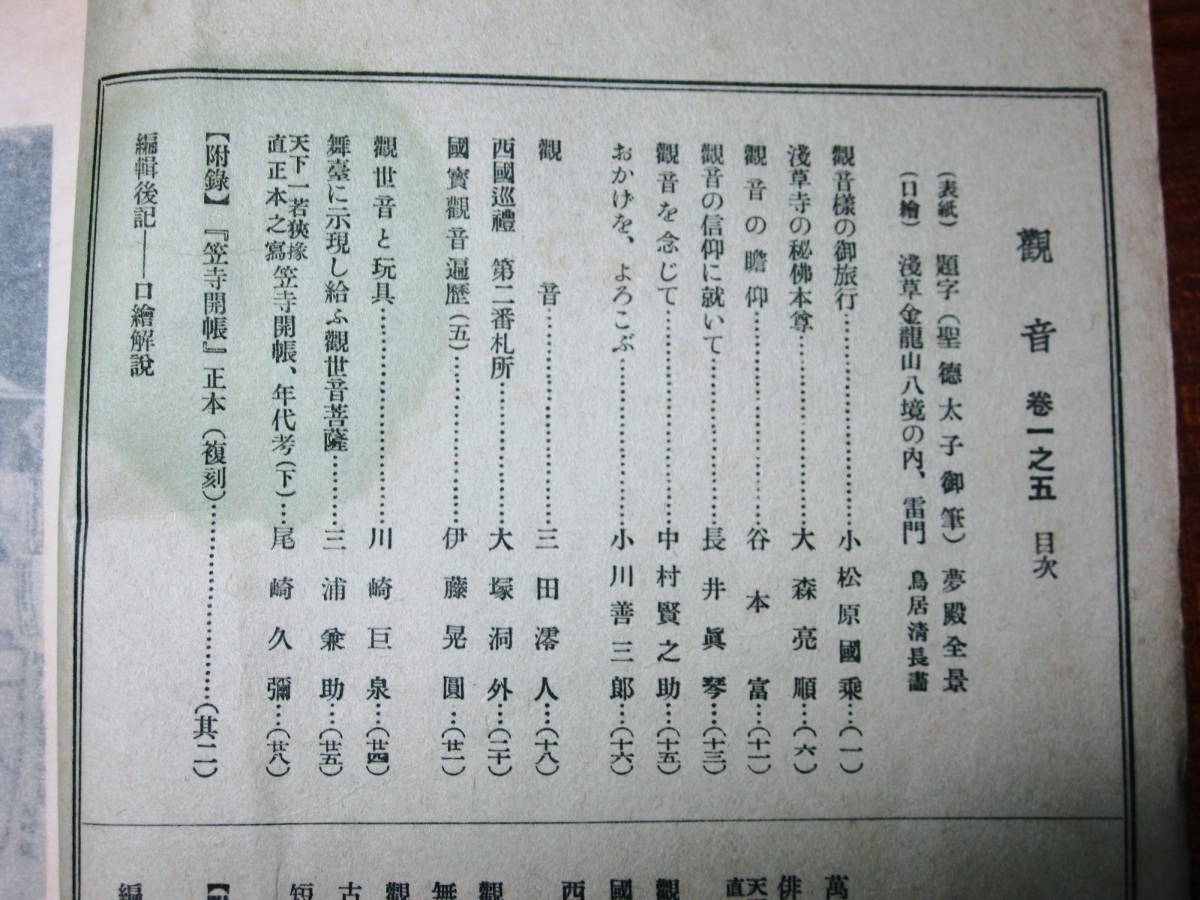 觀音 卷一之五 目次
(表紙) 題字(聖德太子御筆)夢殿全景
(口繪) 淺草金龍山八境の內、雷門 鳥居淸長畵
觀音樣の御旅行……小松原國乘…(一)
淺草寺の秘佛本尊……大森亮順…(六)
觀音の瞻仰……谷本富…(十一)
觀音の信仰に就いて……長井眞琴…(十三)
觀音を念じて……中村賢之助…(十五)
おかげを、よろこぶ……小川善三郎…(十六)
觀音……三田澪人…(十八)
西國巡禮 第二番札所……大塚洞外…(二十)
國寶觀音遍歷(五)……伊藤晃圓…(廿一)
觀世音と玩具……川崎巨泉…(廿四)
舞臺に示現し給ふ觀世音菩薩……三浦兼助…(廿五)
天下一若狹掾直正本之寫 笠寺開帳、年代考(下)…尾崎久彌…(廿八)
【附錄】『笠寺開帳』正本(複刻)……(其二)
編輯後記――口繪解說
萬
俳
天
直
觀
國
西
觀
無
觀
古
短
編